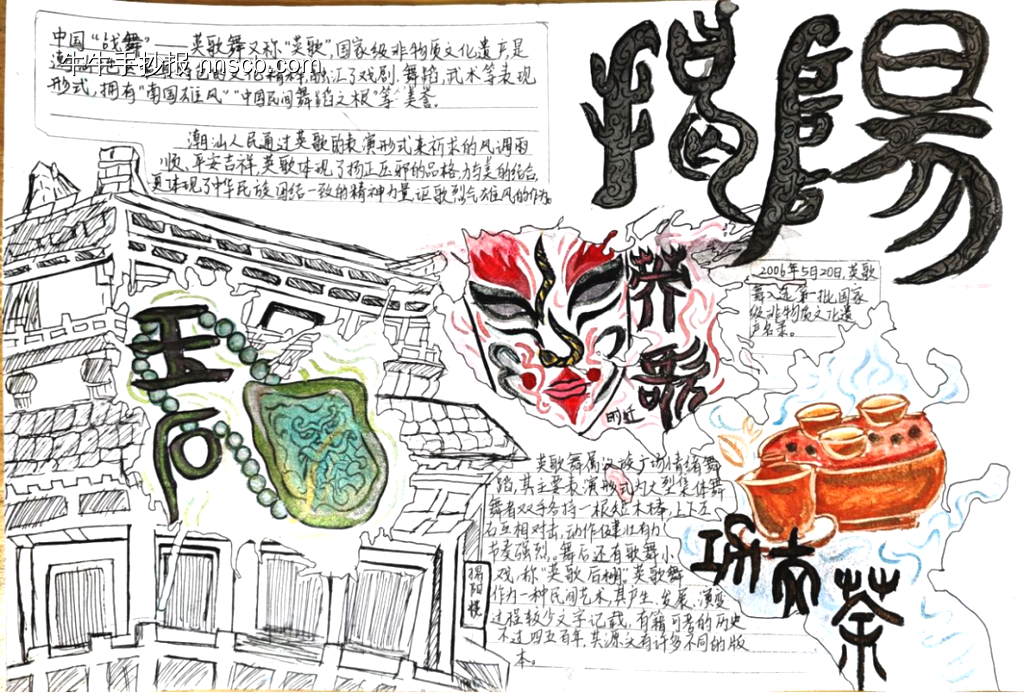 揭陽
中国“战舞”——英歌舞又称“英歌”,国家级非物质文化遗产,是
文化精粹,融汇了戏剧、舞蹈、武术等表现
形式,拥有“南国雄风”“中国民间舞蹈之根”等美誉。
牛牛手抄报 nnscb.com
潮汕人民通过英歌的表演形式来祈求的风调雨
顺、平安吉祥,英歌体现了扬正压邪的品格,力与美的结合,
更体现了中华民族团结一致的精神力量,
玉石
英歌
2006年5月20日,英歌
舞 第一批国家
级非物质文化遗
产名录。
英歌舞属汉族广场情绪舞
蹈,其主要表演形式为大型集体舞
舞者双手各持一根短木棒,上下左
右互相对击,动作健壮有力,
节奏强烈。舞后还有歌舞小
戏,称“英歌后棚”。英歌舞
作为一种民间艺术,其产生、发展、演变
过程较少文字记载,有籍可考的历史
不过四五百年,其源流有许多不同的版
本。
揭阳楼
功夫茶